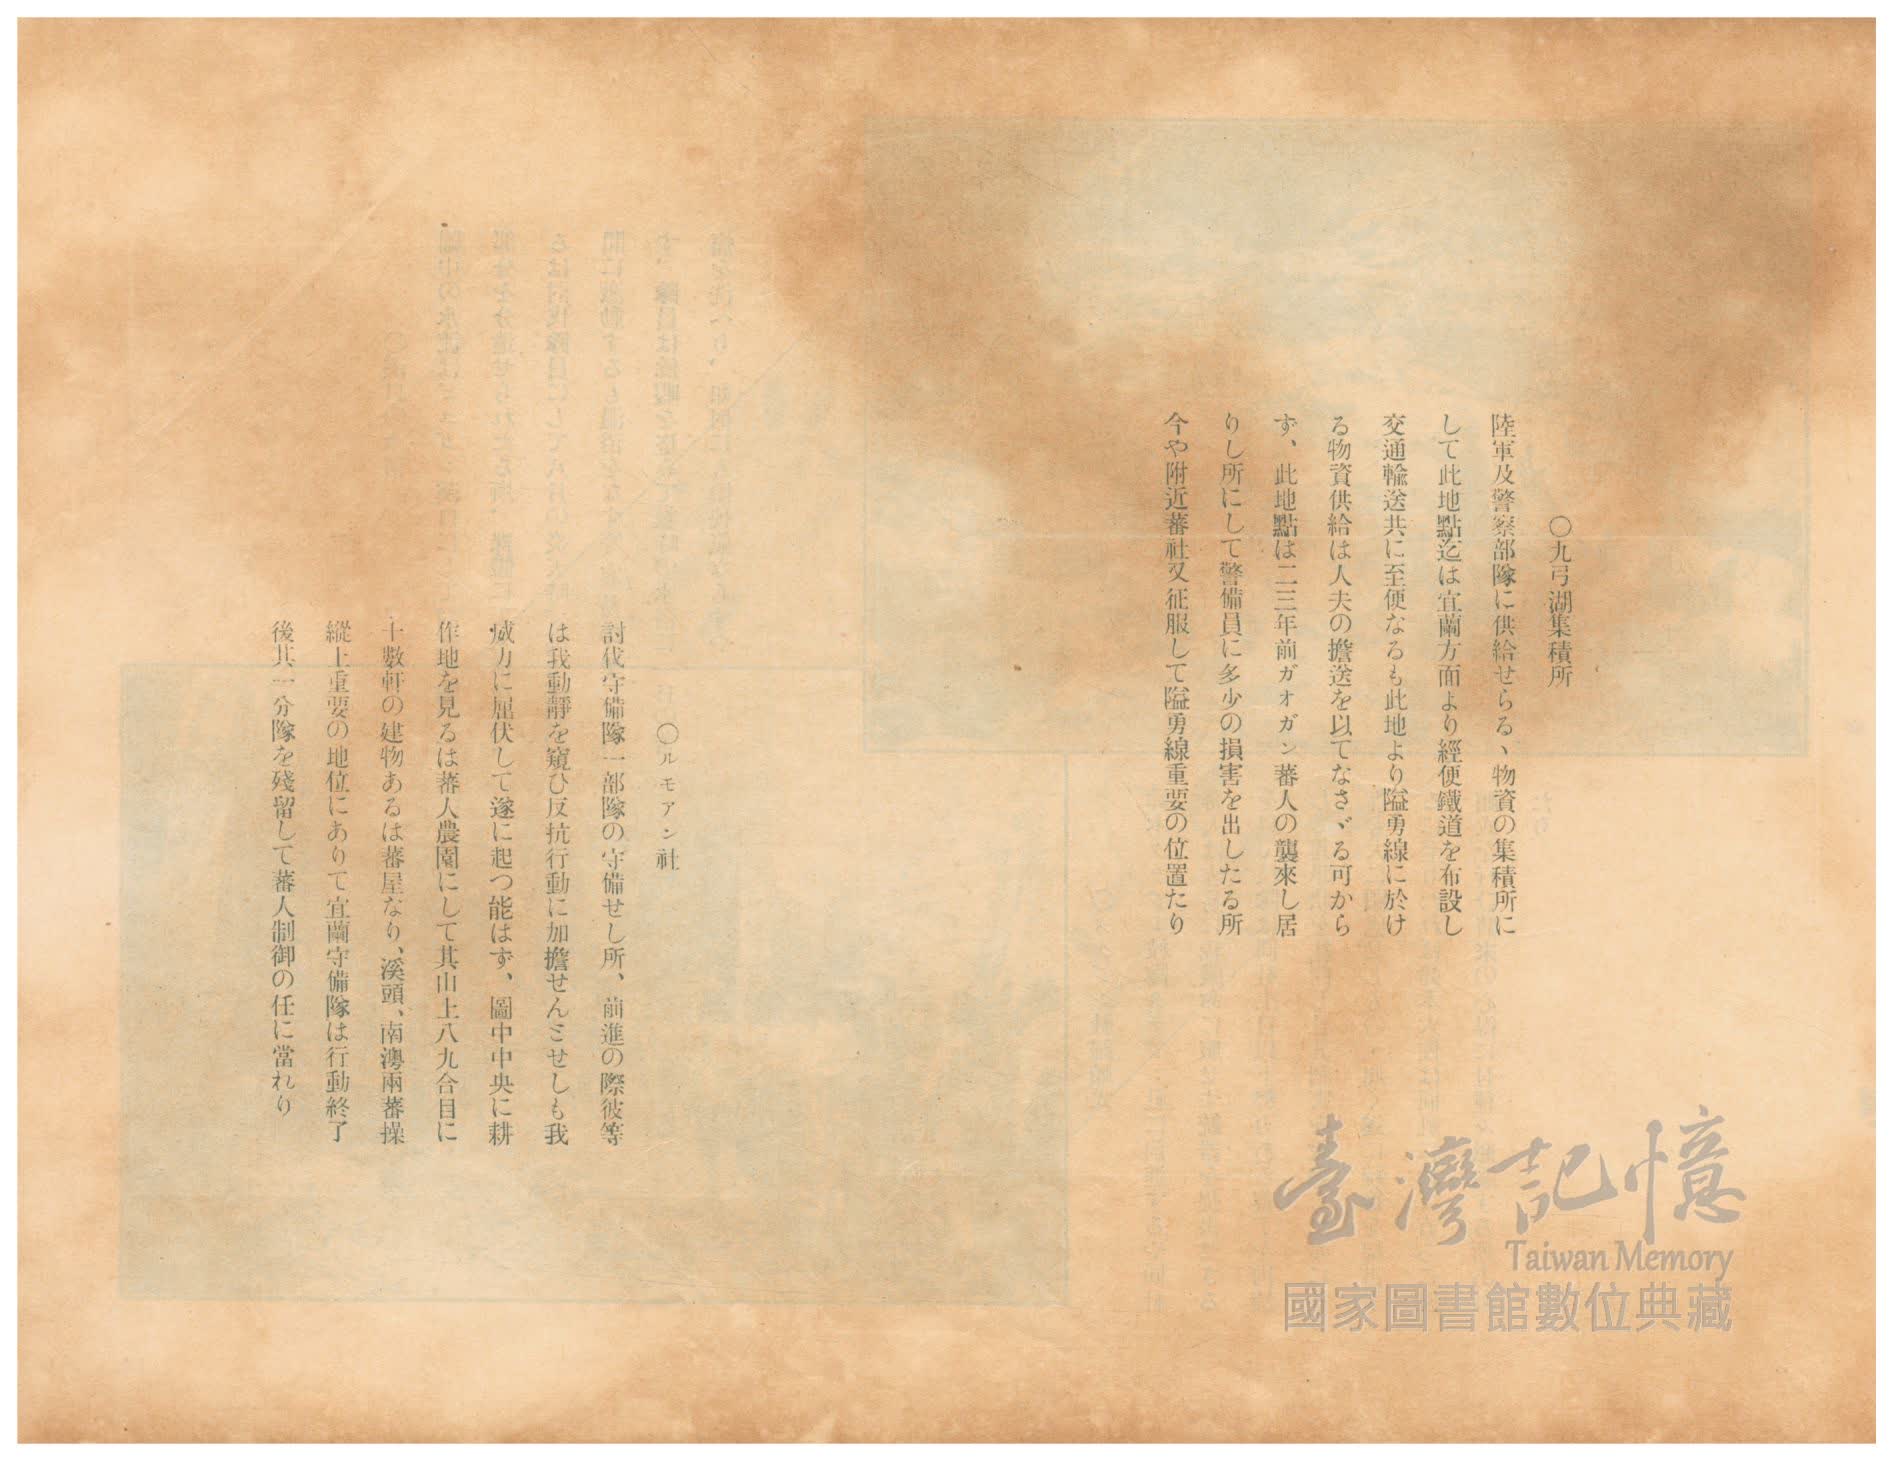 〇九弓湖集積所
陸軍及警察部隊に供給せらるゝ物資の集積所に
して此地點迄は宜蘭方面より經便鐵道を布設し
交通輸送共に至便なるも此地より隘勇線に於け
る物資供給は人夫の擔送を以てなさゞる可から
ず、此地點は二三年前ガオガン蕃人の襲來し居
りし所にして警備員に多少の損害を出したる所
今や附近蕃社又征服して隘勇線重要の位置たり
〇ルモアン社
討伐守備隊一部隊の守備せし所、前進の際彼等
は我動靜を窺ひ反抗行動に加擔せんとせしも我
威力に屈伏して遂に起つ能はず、圖中中央に耕
作地を見るは蕃人農園にして其山上八九合目に
十數軒の建物あるは蕃屋なり、溪頭、南澳兩蕃操
縱上重要の地位にありて宜蘭守備隊は行動終了
後其一分隊を殘留して蕃人制御の任に當れり
臺灣記憶
Taiwan Memory
國家圖書館數位典藏